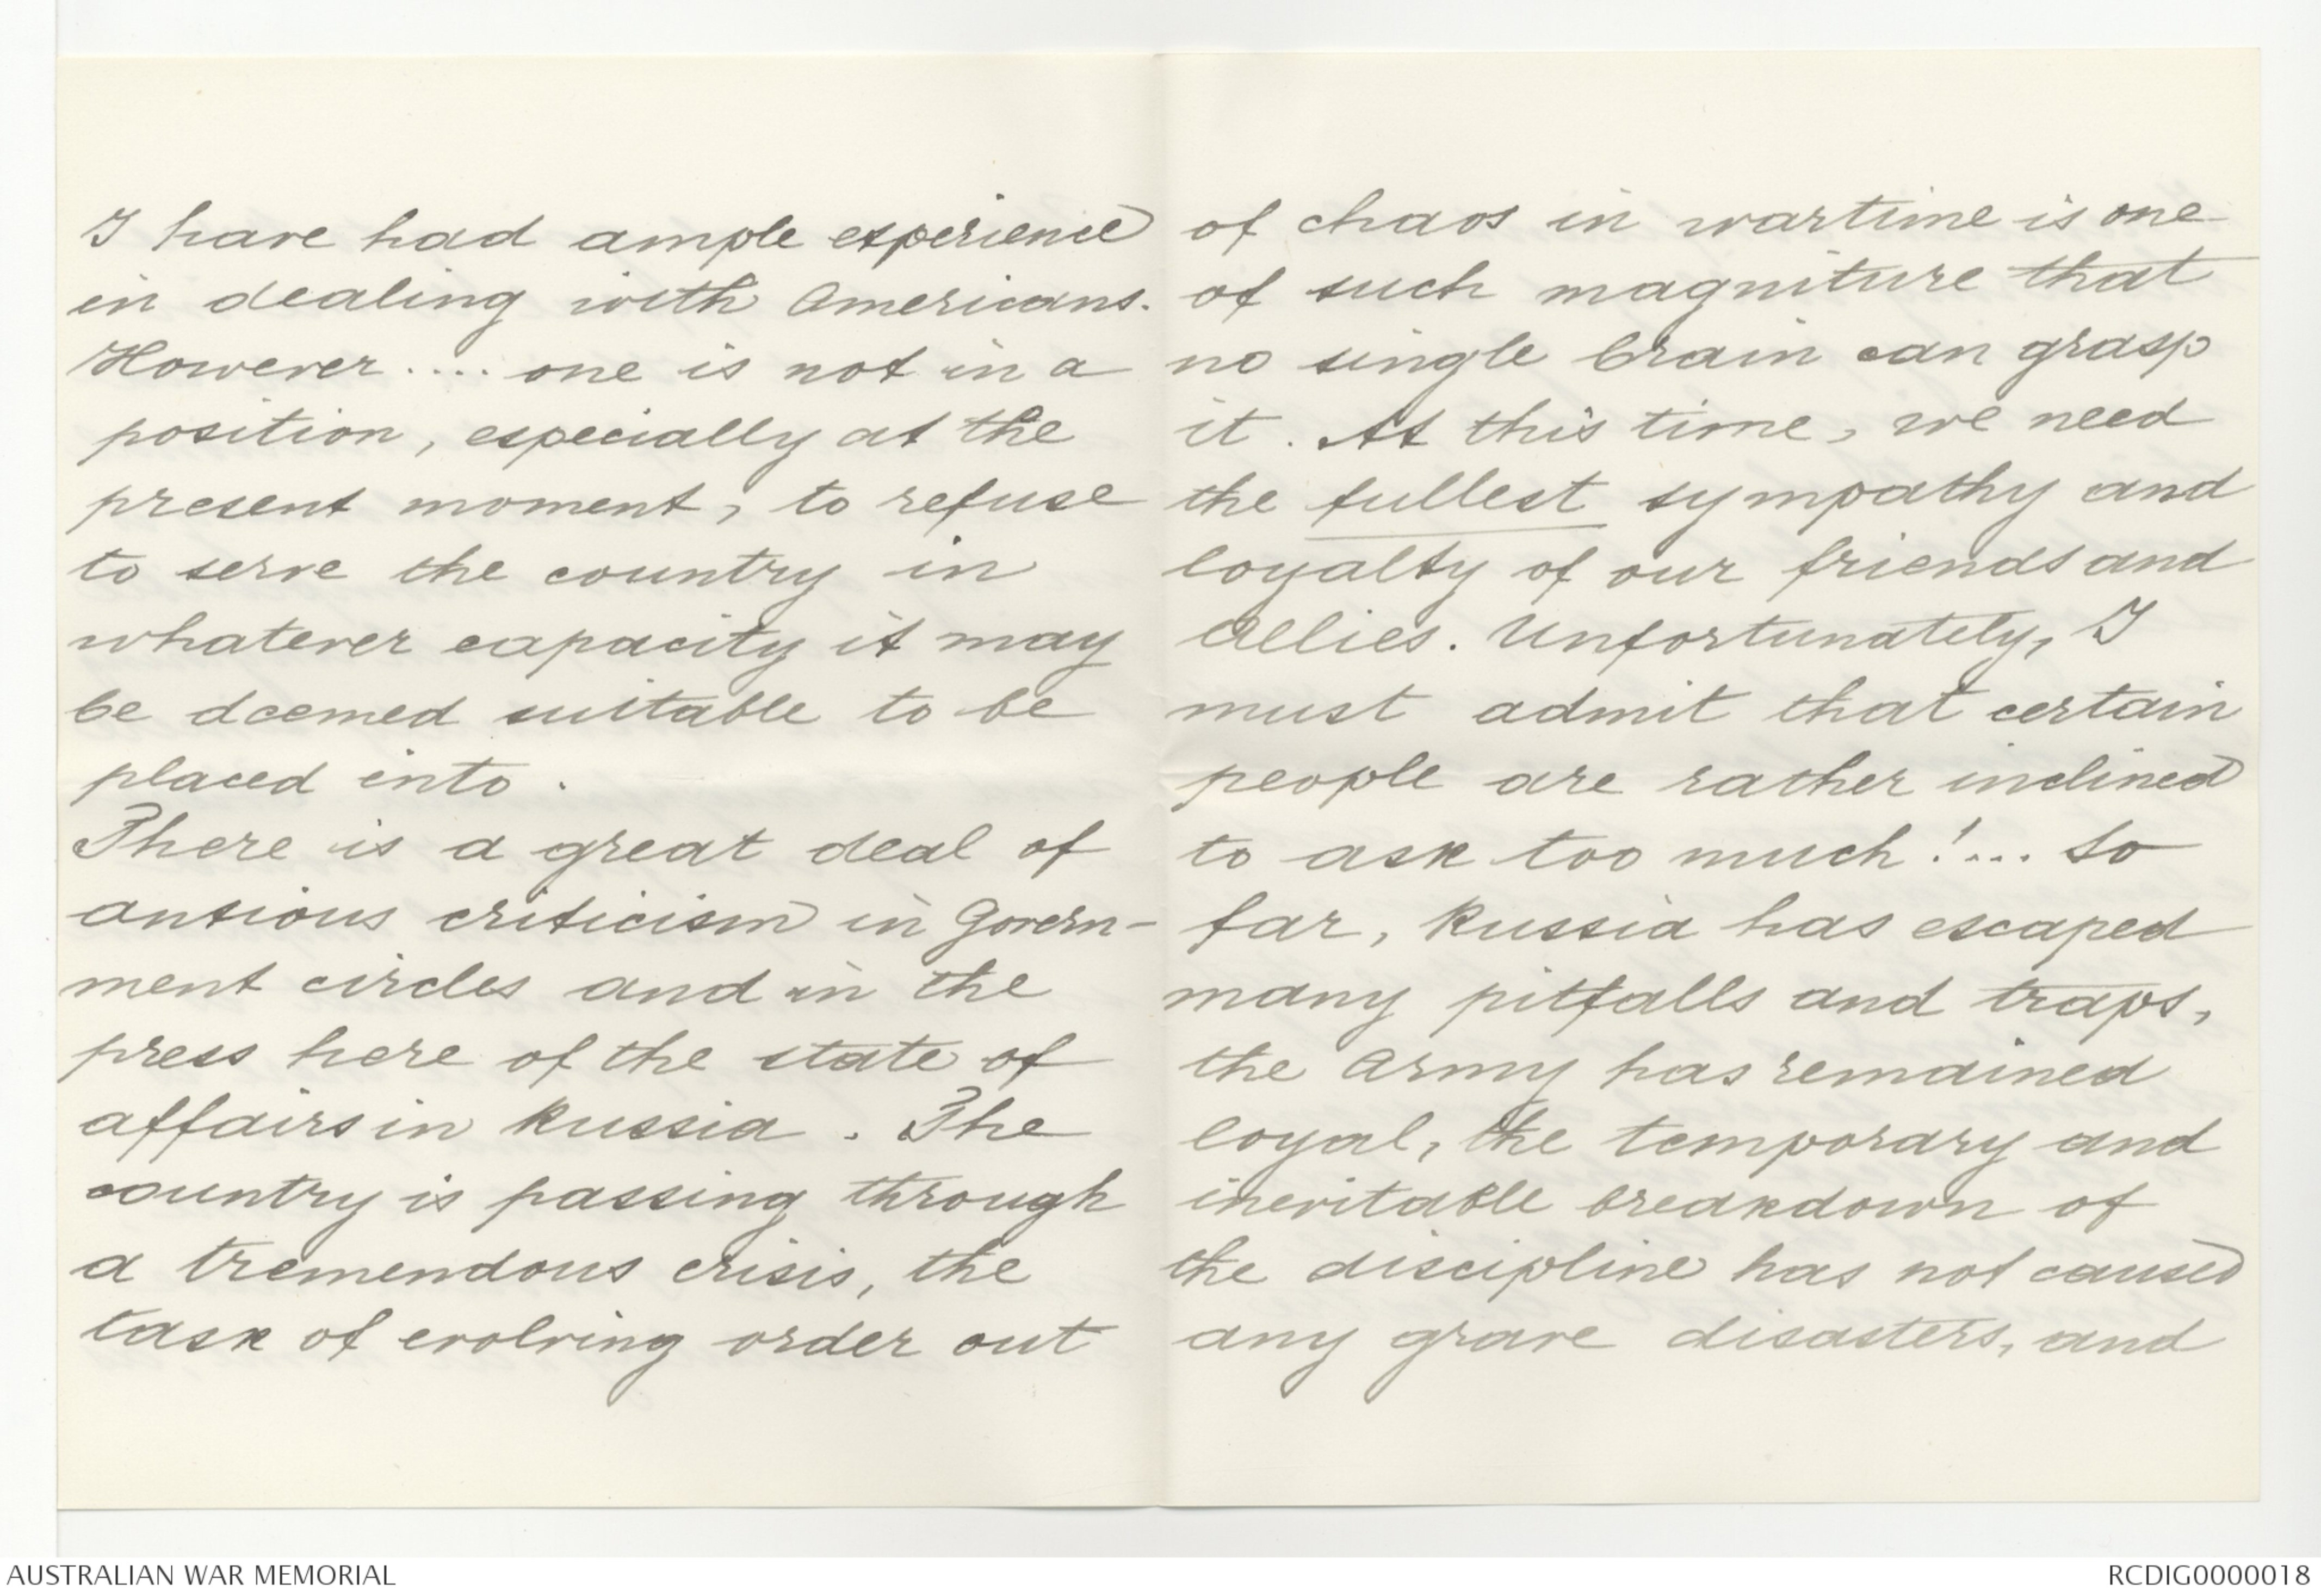 I have had ample experience
in dealing with Americans.
However .... one is not in a
position, especially at the
present moment, to refuse
to serve the country in
whatever capacity it may
be deemed suitable to be
placed into.
There is a great deal of
anxious criticism in Govern-
ment circles and in the
press here of the state of
affairs in Russia. The
country is passing through
a tremendous crisis, the
task of evolving order out
of chaos in wartime is one
of such magniture that
no single brain can grasp
it. At this time, we need
the fullest sympathy and
loyalty of our friends and
Allies. Unfortunately, I
must admit that certain
people are rather inclined
to ask too much! ... So
far, Russia has escaped
many pitfalls and traps,
the Army has remained
loyal, the temporary and
inevitable breakdown of
the discipline has not caused
any grave disasters, and
AUSTRALIAN WAR MEMORIAL
RCDIG0000018